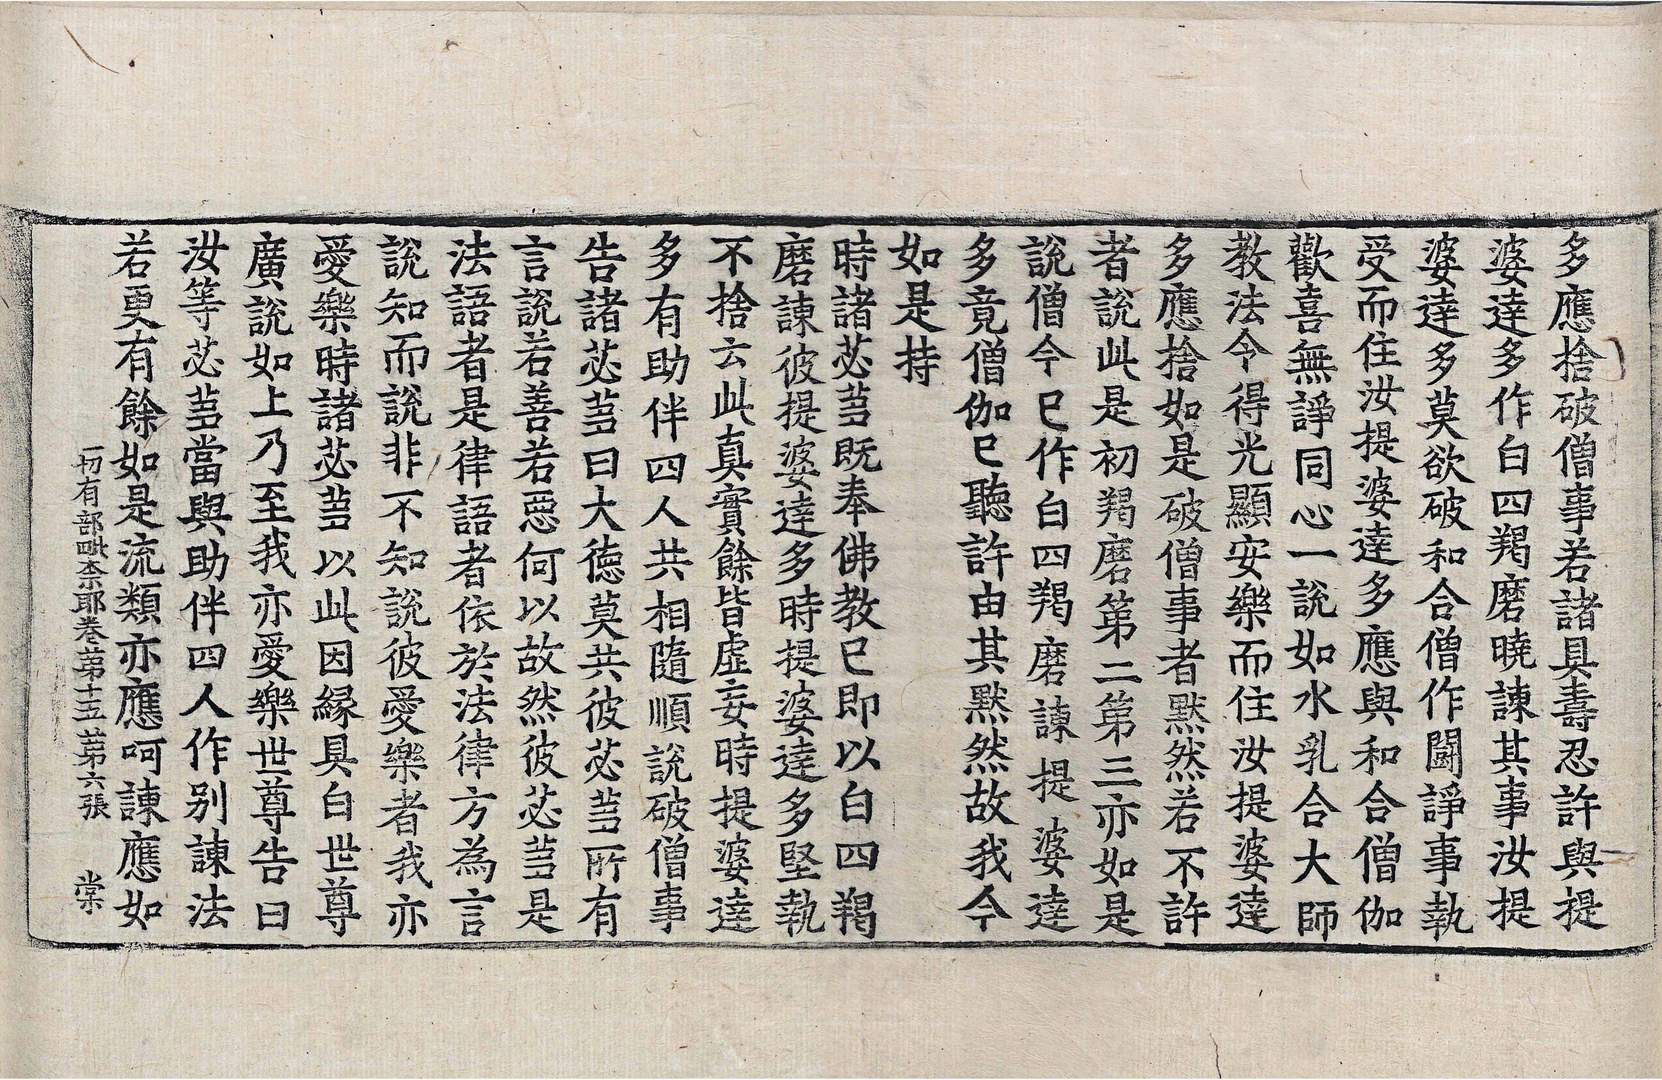 多應捨破僧事若諸具壽忍許與提
婆達多作白四羯磨曉諫其事汝提
婆達多莫欲破和合僧作鬪諍事執
受而住汝提婆達多應與和合僧伽
歡喜無諍同心一說如水乳合大師
教法令得光顯安樂而住汝提婆達
多應捨如是破僧事者默然若不許
者說此是初羯磨第二第三亦如是
說僧今已作白四羯磨諫提婆達
多竟僧伽已聽許由其默然故我今
如是持
時諸苾芻既奉佛教已即以白四羯
磨諫彼提婆達多時提婆達多堅執
不捨云此真實餘皆虛妄時提婆達
多有助伴四人共相隨順說破僧事
告諸苾芻曰大德莫共彼苾芻所有
言說若善若惡何以故然彼苾芻是
法語者是律語者依於法律方為言
說知而說非不知說彼愛樂者我亦
愛樂時諸苾芻以此因緣具白世尊
廣說如上乃至我亦愛樂世尊告曰
汝等苾芻當與助伴四人作別諫法
若更有餘如是流類亦應呵諫應如
一切有部毗柰耶卷第十五 第六張 棠